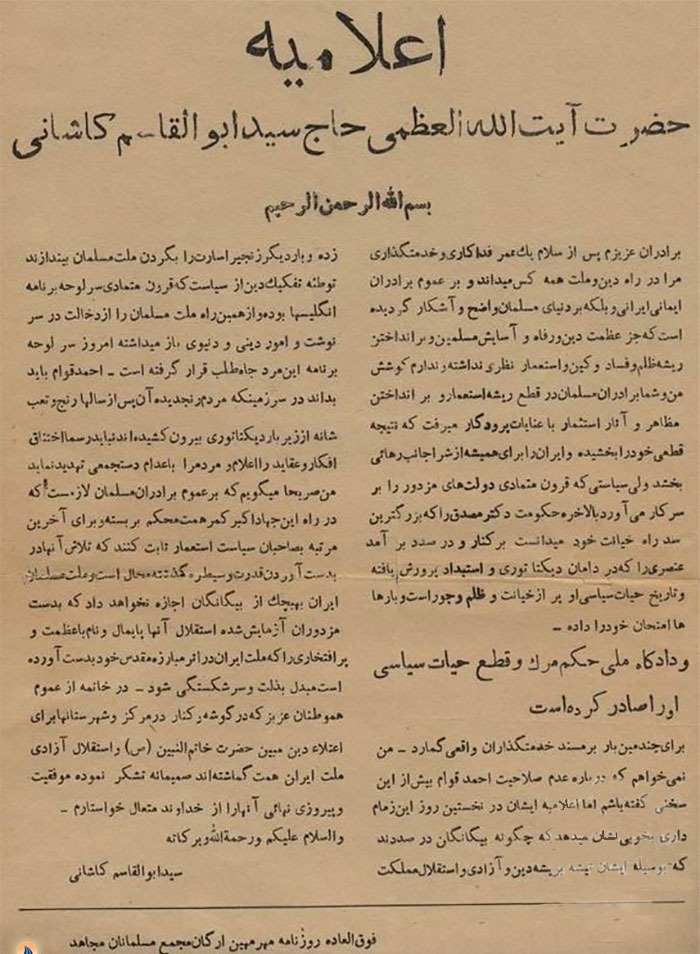 اعلامیه
حضرت آیت الله العظمی حاج سید ابوالقاسم کاشانی
بسم الله الرحمن الرحیم
برادران عزیزم پس از سلام یك عمر فداکاری و خدمتگذاری
مرا در راه دین و ملت همه کس میداند و بر عموم برادران
ایمانی ایرانی و بلکه بر دنیای مسلمان واضح و آشکار گردیده
است که جز عظمت دین و رفاه و آسایش مسلمین و برانداختن
ریشه ظلم و فساد و کین و استعمار نظری نداشته و ندارم کوشش
من و شما برادران مسلمان در قطع ریشه استعمار و بر انداختن
مظاهر و آثار استثمار با عنایات پرودگار میرفت که نتیجه
قطعی خود را بخشیده و ایران را برای همیشه از شر اجانب رهائی
بخشد ولی سیاستی که قرون متمادی دولت‌های مزدور را بر
سر کار می آورد بالاخره حکومت دکتر مصدق را که بزرگترین
سد راه خیانت خود میدانست برکنار و در صدد بر آمد
عنصری را که در دامان دیکتا توری و استبداد پرورش یافته
و تاریخ حیات سیاسی او پر از خیانت و ظلم و جور است و بارها
ها امتحان خود را داده -
و دادگاه ملی حکم مرك و قطع حیات سیاسی
او را صادر کرده است
برای چندمین بار بر مسند خدمتگذاران واقعی گمارد - من
نمی‌خواهم که درباره عدم صلاحیت احمد قوام بیش از این
سخنی گفته باشم اما اعلامیه ایشان در نخستین روز این زمام
داری بخوبی نشان میدهد که چگونه بیگانگان در صددند
که بوسیله ایشان تیشه بریشه دین و آزادی و استقلال مملکت
زده و بار دیگر زنجیر اسارت را بگردن ملت مسلمان بیندازند
توطئه تفکیك دین از سیاست که قرون متمادی سر لوحه برنامه
انگلیسها بوده و از همین راه ملت مسلمان را از دخالت در سر
نوشت و امور دینی و دنیوی باز میداشته امروز سر لوحه
برنامه این مرد جاه طلب قرار گرفته است - احمد قوام باید
بداند در سرزمینکه مردم رنجدیده آن پس از سالها رنج و تعب
شانه از زیر بار دیکتاتوری بیرون کشیده اند نباید رسما اختناق
افکار و عقاید را اعلام و مردم را باعدام دستجمعی تهدید نماید
من صریحا میگویم که بر عموم برادران مسلمان لازمست که
در راه این جهاد اکبر کمر همت محکم بر بسته و برای آخرین
مرتبه بصاحبان سیاست استعمار ثابت کنند که تلاش آنها در
بدست آوردن قدرت و سیطره گذشته محال است و ملت مسلمان
ایران بهیچیك از بیگانگان اجازه نخواهد داد که بدست
مزدوران آزمایش شده استقلال آنها پایمال و نام با عظمت و
پر افتخاری را که ملت ایران در اثر مبارزه مقدس خود بدست آورده
است مبدل بذلت و سرشکستگی شود - در خاتمه از عموم
هموطنان عزیز که در گوشه و کنار در مرکز و شهرستانها برای
اعتلاء دین مبین حضرت خاتم النبین (ص) و استقلال آزادی
ملت ایران همت گماشته‌اند صمیمانه تشکر نموده موفقیت
و پیروزی نهائی آنها را از خداوند متعال خواستارم -
والسلام علیکم و رحمة الله و برکاته
سید ابوالقاسم کاشانی
فوق العاده روزنامه مهر میهن ارگان مجمع مسلمانان مجاهد